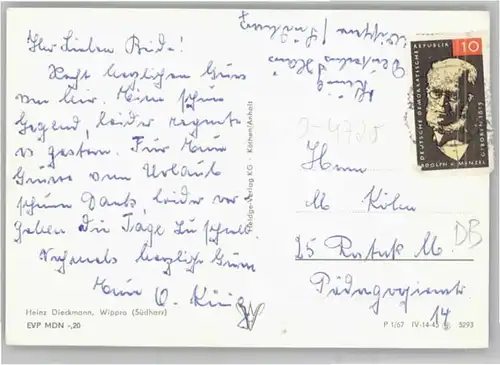 Ihr Lieben Beide!
Recht herzlichen Gruss
von hier. Eine schöne
Gegend, leider regnete
es gestern. Für Eure
Grüsse vom Urlaub
schönen Dank, leider ver-
gehen die Tage zu schnell.
Nochmals herzliche Grüsse
Eure O. König
Heinz Dieckmann, Wippra (Südharz)
EVP MDN -,20
Verlag KG · Köthen/Anhalt
König
Deutsches Haus
Wippra / Südharz
DEUTSCHE DEMOKRATISCHE REPUBLIK
10
ADOLPH v. MENZEL
GEBOREN 1815
Herrn
M Köhn
25 Rostock M.
Pädagogienstr.
14
DB
P 1/67 IV-14-45 5293